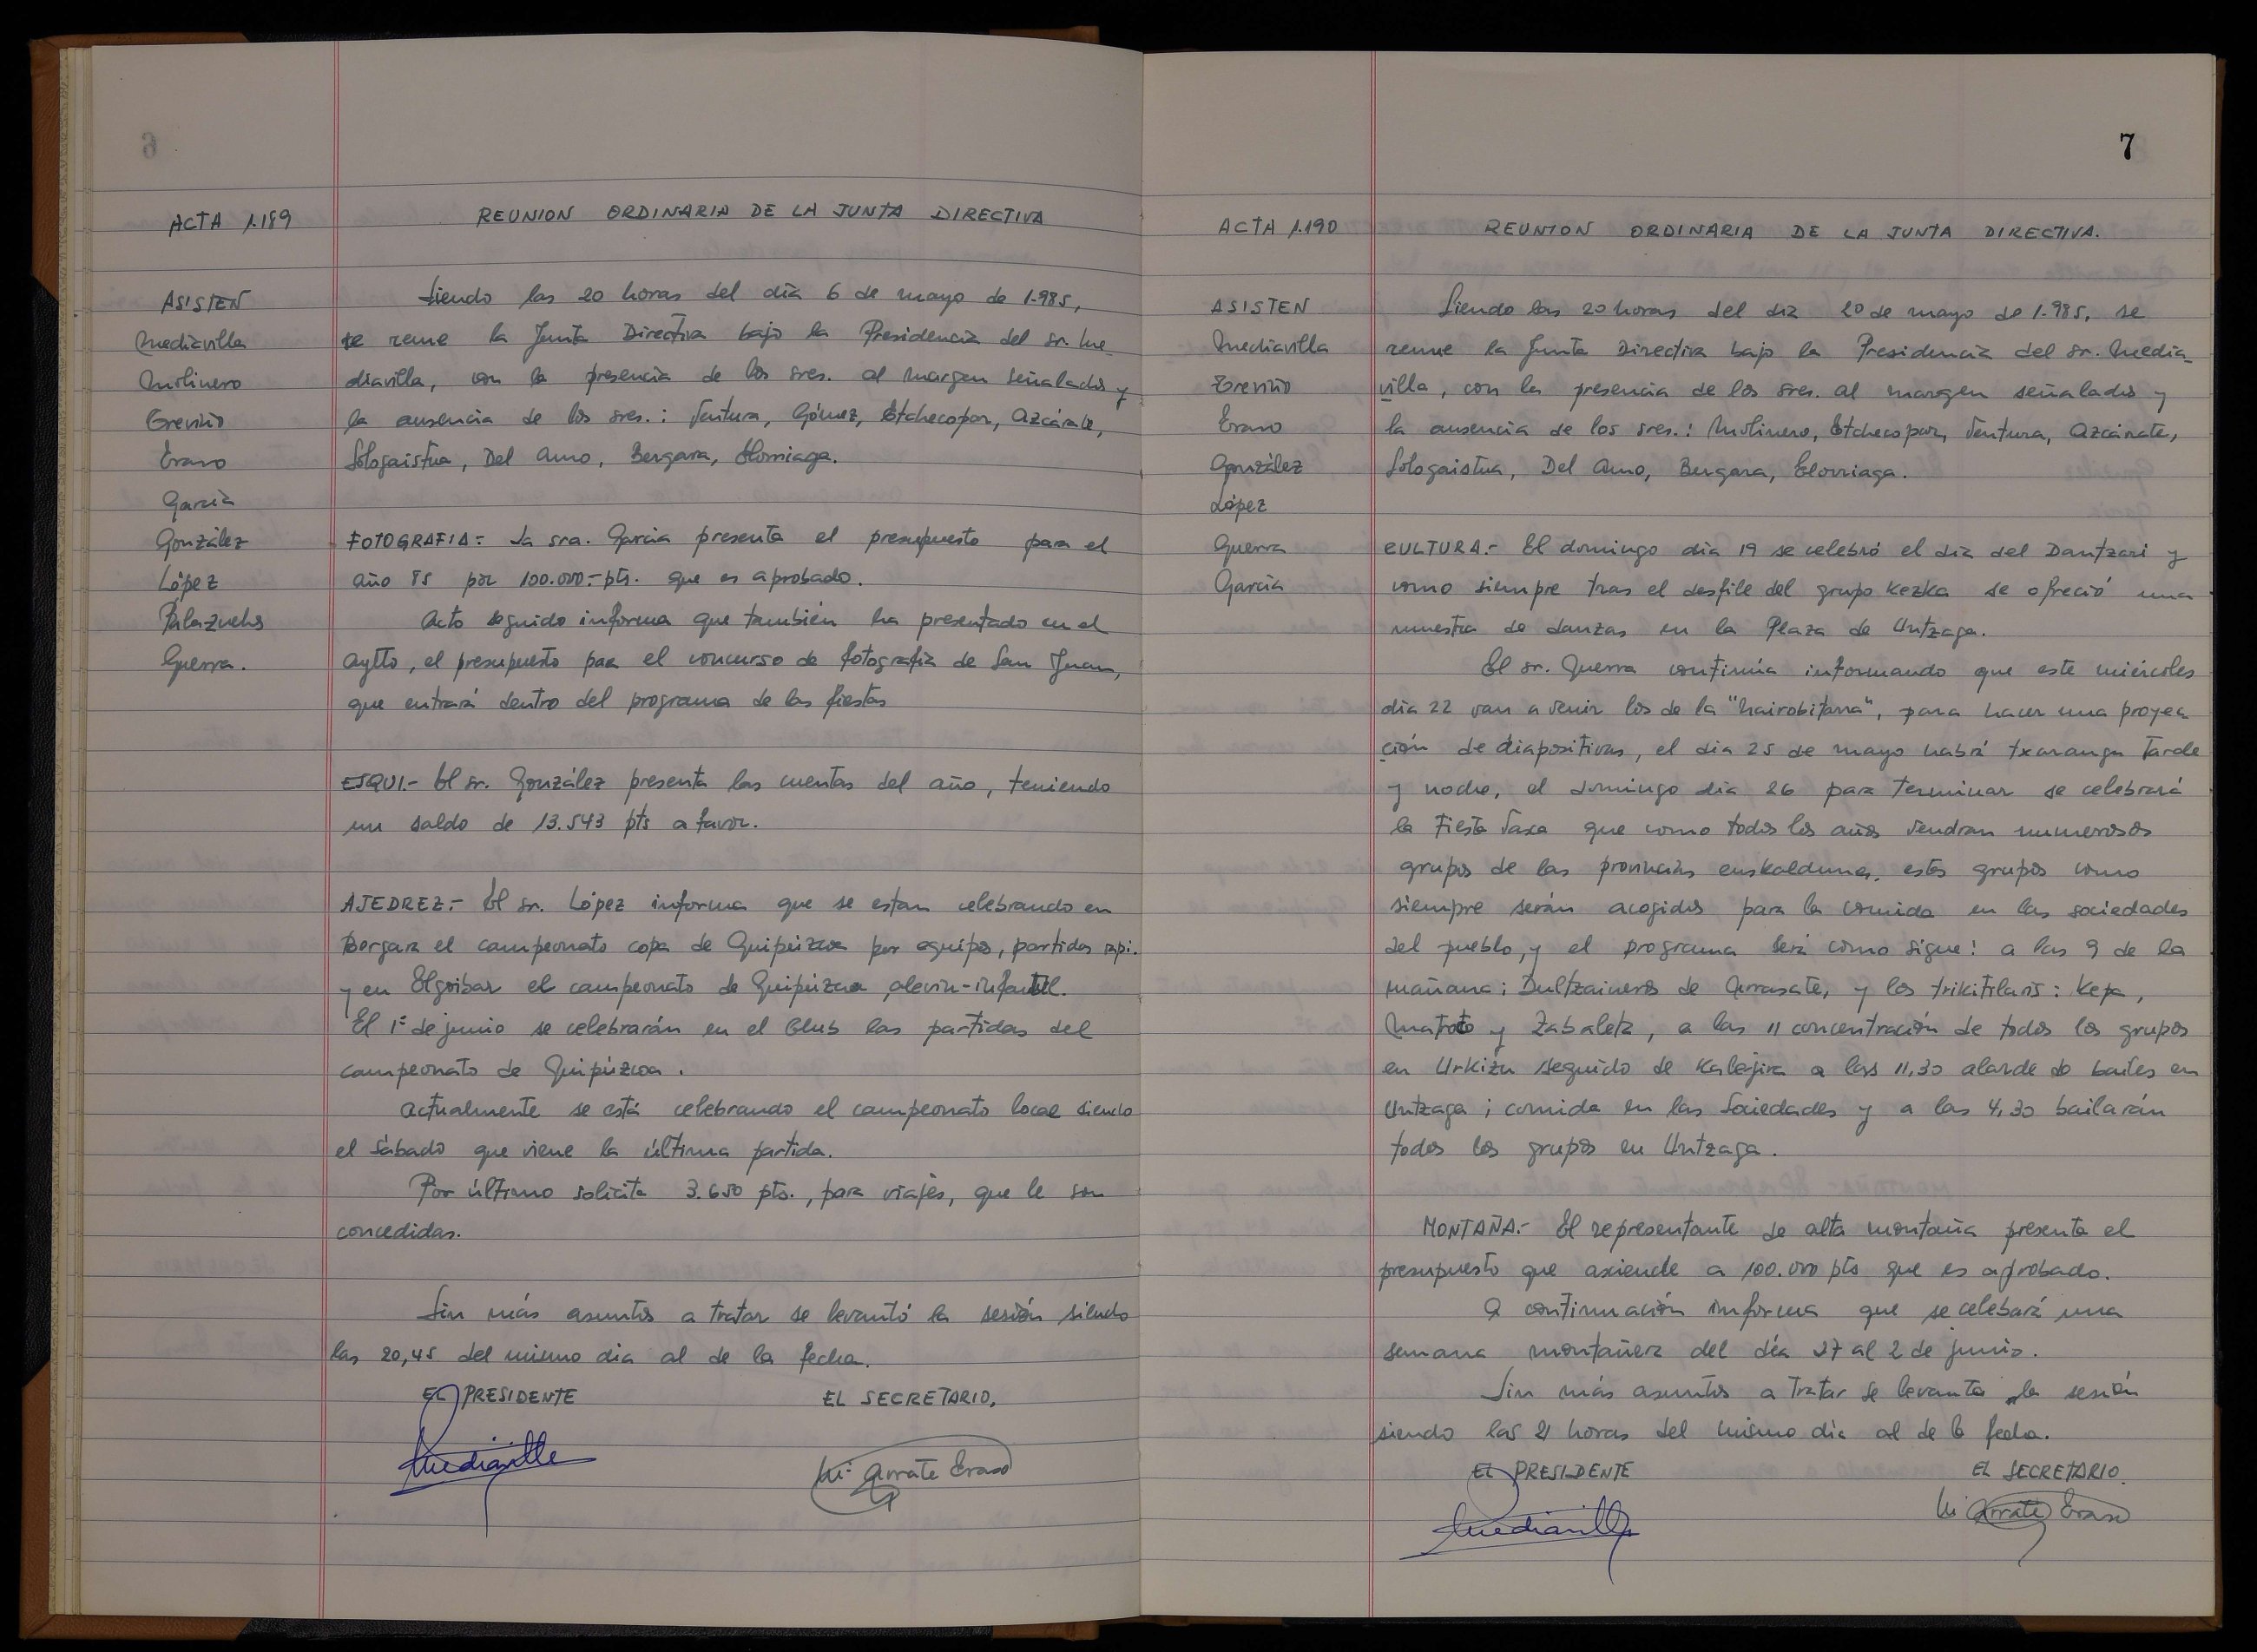 ACTA 1.189
REUNION ORDINARIA DE LA JUNTA DIRECTIVA
ASISTEN
Mediavilla
Molinero
Treviño
Eraso
García
González
López
Palazuelos
Guerra.
Siendo las 20 horas del día 6 de mayo de 1.985,
se reune la Junta Directiva bajo la Presidencia del sr. Me-
diavilla, con la presencia de los sres. al margen señalados y
la ausencia de los sres.: Ventura, Gómez, Etchecopar, Azcárate,
Sologaistua, Del Amo, Bergara, Elorriaga.
FOTOGRAFIA= La sra. Garcia presenta el presupuesto para el
año 85 por 100.000.- pts. que es aprobado.
Acto seguido informa que también ha presentado en el
Aytto, el presupuesto para el concurso de fotografía de San Juan,
que entrará dentro del programa de las fiestas
ESQUI.- El sr. González presenta las cuentas del año, teniendo
un saldo de 13.543 pts a favor.
AJEDREZ.- El sr. López informa que se estan celebrando en
Bergara el campeonato copa de Guipúzcoa por equipos, partidos rapi.
y en Elgoibar el campeonato de Guipúzcoa, alevin-infantil.
El 1º de junio se celebrarán en el Club las partidas del
campeonato de Guipúzcoa.
Actualmente se está celebrando el campeonato local siendo
el sábado que viene la última partida.
Por último solicita 3.650 pts., para viajes, que le son
concedidas.
Sin más asuntos a tratar se levantó la sesión siendo
las 20,45 del mismo dia al de la fecha.
EL PRESIDENTE EL SECRETARIO,
Mediavilla Mª Arrate Eraso
7
ACTA 1.190
REUNION ORDINARIA DE LA JUNTA DIRECTIVA.
ASISTEN
Mediavilla
Treviño
Eraso
González
López
Guerra
García
Siendo las 20 horas del dia 20 de mayo de 1.985, se
reune la Junta Directiva bajo la Presidencia del sr. Media-
villa, con la presencia de los sres. al margen señalados y
la ausencia de los sres.: Molinero, Etchecopar, Ventura, Azcárate,
Sologaistua, Del Amo, Bergara, Elorriaga.
CULTURA.- El domingo día 19 se celebró el dia del Dantzari y
como siempre tras el desfile del grupo Kezka se ofreció una
muestra de danzas en la Plaza de Untzaga.
El sr. Guerra continúa informando que este miércoles
día 22 van a venir los de la "Nairobitarra", para hacer una proyec
ción de diapositivas, el dia 25 de mayo habrá txaranga tarde
y noche, el domingo día 26 para terminar se celebrará
la Fiesta Vasca que como todos los años vendran numerosos
grupos de las provincias euskaldunes, estos grupos como
siempre serán acogidos para la comida en las sociedades
del pueblo, y el programa será como sigue: a las 9 de la
mañana; Dultzaineros de Arrasate, y los trikitilaris: Kepa,
Maroto y Zabaleta, a las 11 concentración de todos los grupos
en Urkizu seguido de Kalejira a las 11,30 alarde de bailes en
Untzaga; comida en las sociedades y a las 4,30 bailarán
todos los grupos en Untzaga.
MONTAÑA.- El representante de alta montaña presenta el
presupuesto que asciende a 100.000 pts que es aprobado.
A continuación informa que se celebará una
semana montañera del día 27 al 2 de junio.
Sin más asuntos a tratar se levanta la sesión
siendo las 21 horas del mismo dia al de la fecha.
EL PRESIDENTE EL SECRETARIO.
Mediavilla Mª Arrate Eraso